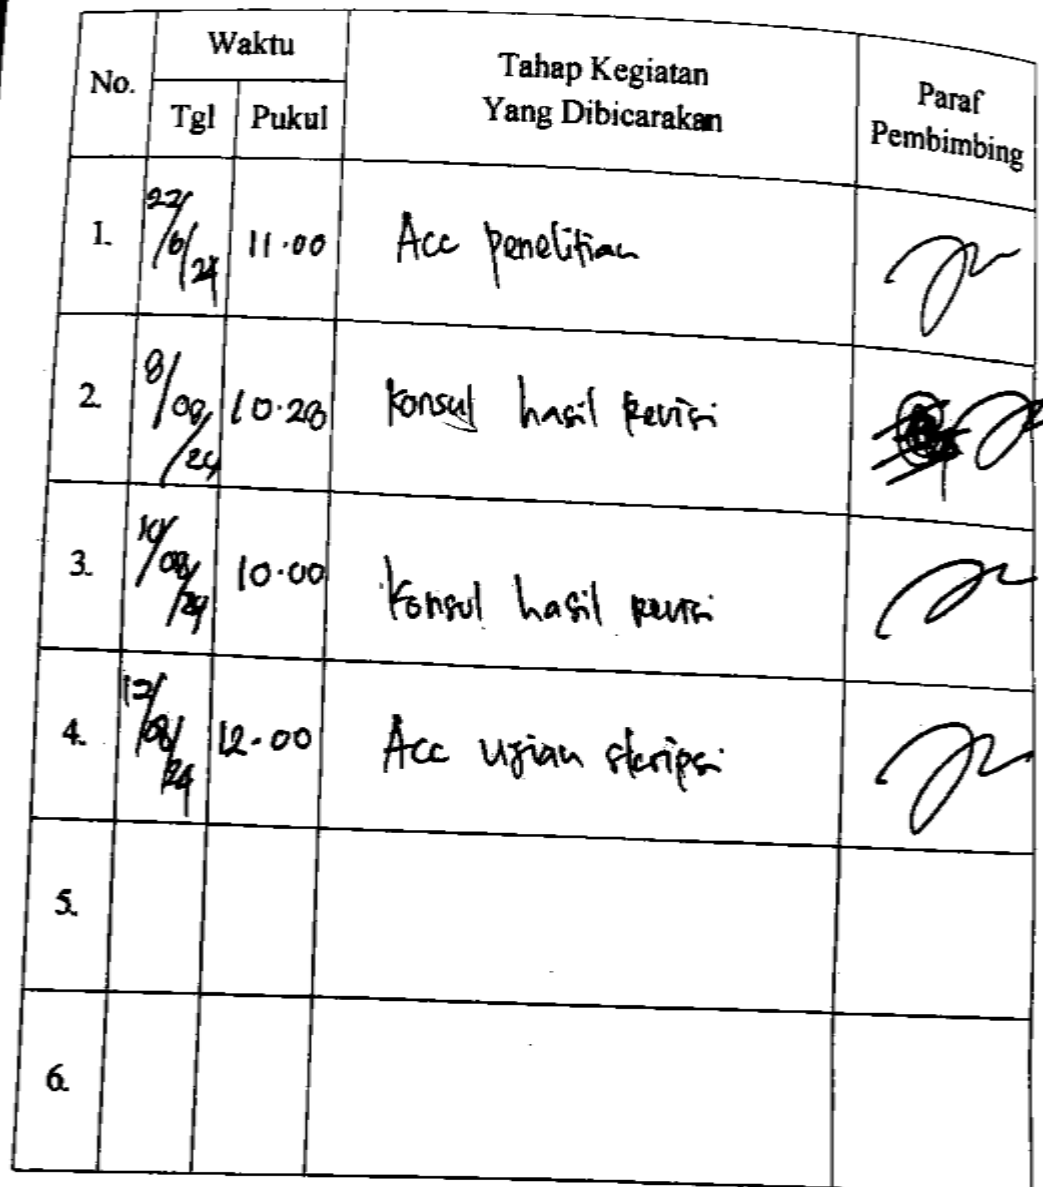 No. Waktu Tahap Kegiatan Yang Dibicarakan Paraf Pembimbing
Tgl Pukul
1. 22/6/24 11.00 Acc penelitian
2. 8/08/24 10.28 Konsul hasil revisi
3. 10/08/24 10.00 Konsul hasil revisi
4. 12/08/24 12.00 Acc ujian skripsi
5.
6.